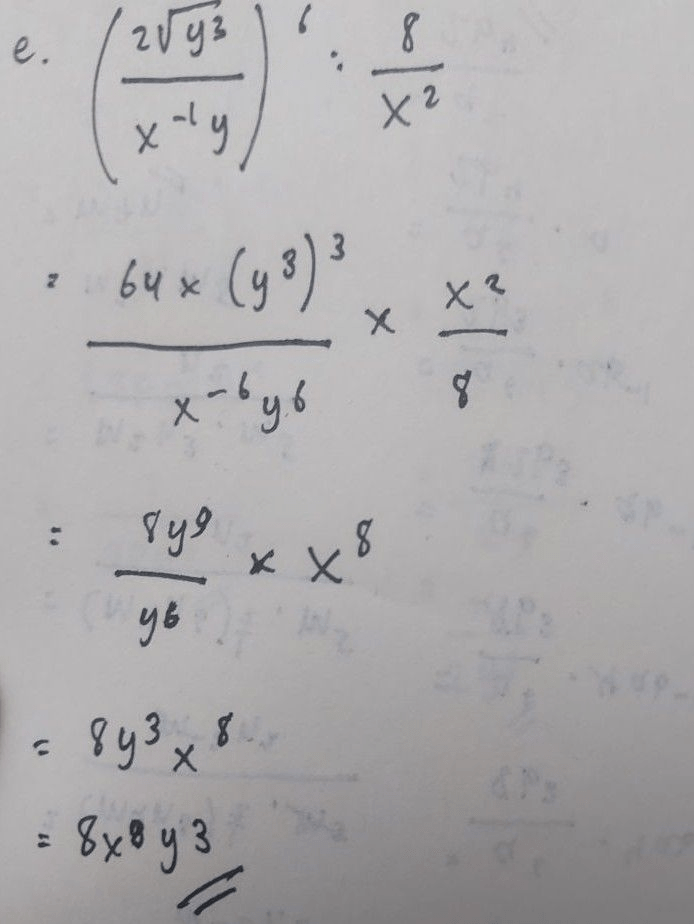 e. (2√y³ / x⁻¹y)⁶ : 8 / x²
= 64 x (y³)³ / x⁻⁶y⁶ x x² / 8
= 8y⁹ / y⁶ x x⁸
= 8y³x⁸
= 8x⁸y³